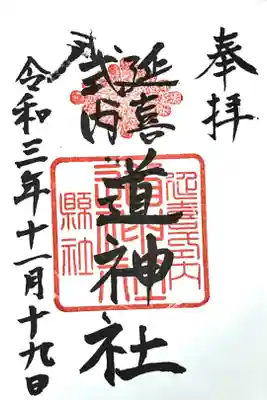 奉拝
延喜
式内
道神社
令和三年十一月十九日
延喜式内
縣社